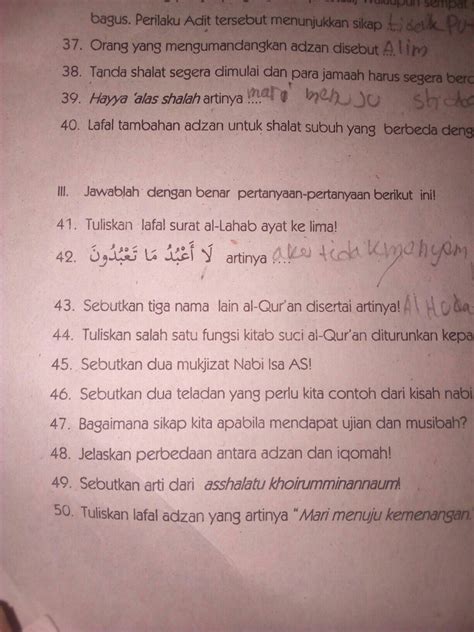 bagus. Perilaku Adit tersebut menunjukkan sikap tidak Pu
37. Orang yang mengumandangkan adzan disebut Alim
38. Tanda shalat segera dimulai dan para jamaah harus segera berd
39. Hayya 'alas shalah artinya .... mari menuju
40. Lafal tambahan adzan untuk shalat subuh yang berbeda deng
III. Jawablah dengan benar pertanyaan-pertanyaan berikut ini!
41. Tuliskan lafal surat al-Lahab ayat ke lima!
42. لَا أَعْبُدُ مَا تَعْبُدُونَ artinya .... tidak
43. Sebutkan tiga nama lain al-Qur'an disertai artinya! Al Huda
44. Tuliskan salah satu fungsi kitab suci al-Qur'an diturunkan kepa
45. Sebutkan dua mukjizat Nabi Isa AS!
46. Sebutkan dua teladan yang perlu kita contoh dari kisah nabi
47. Bagaimana sikap kita apabila mendapat ujian dan musibah?
48. Jelaskan perbedaan antara adzan dan iqomah!
49. Sebutkan arti dari asshalatu khoirumminannaum!
50. Tuliskan lafal adzan yang artinya "Mari menuju kemenangan.